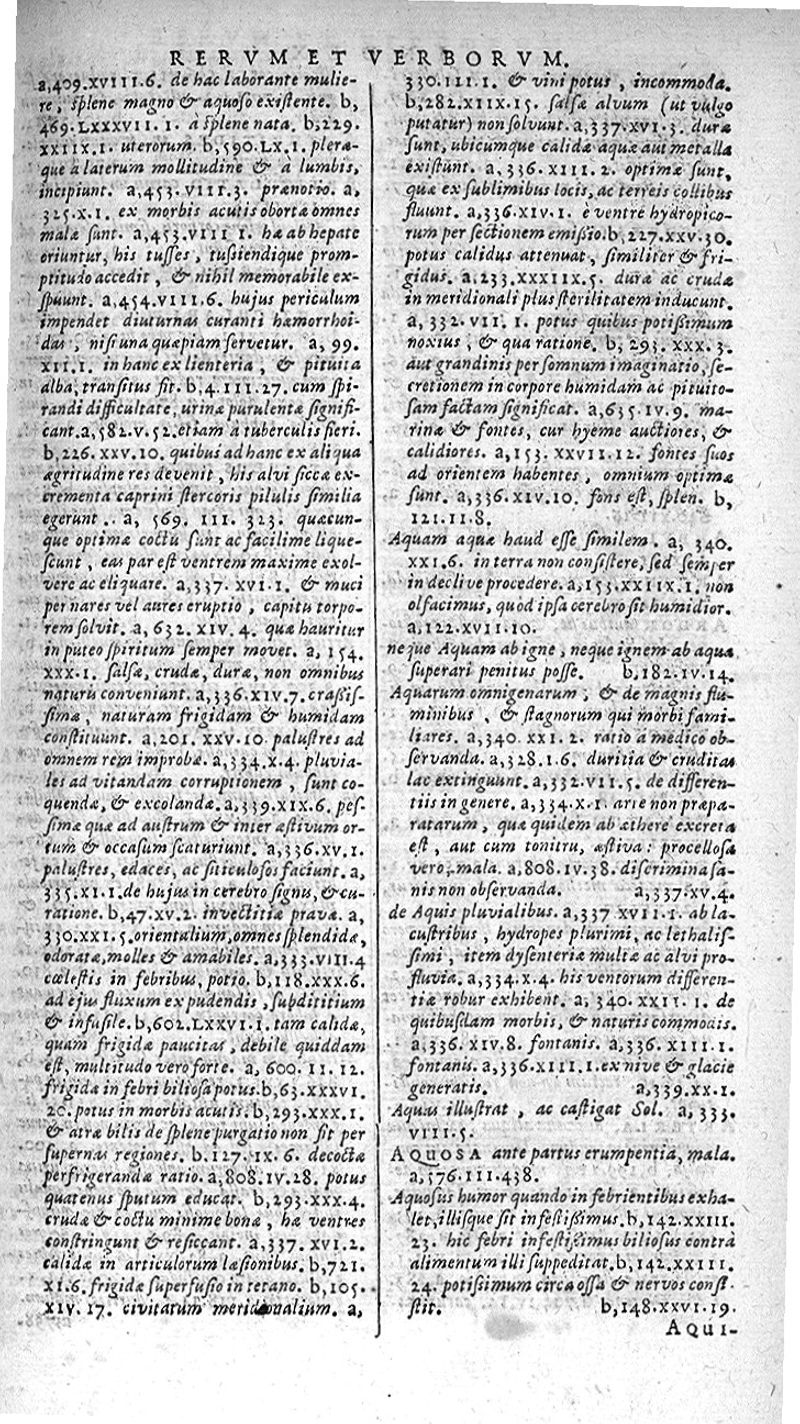 RERVM ET VERBORVM.
a,409.XVIII.6. de hac laborante mulie-
re, ſplene magno & aquoſo exiſtente. b,
469.LXXXVII. I. à ſplene nata. b,229.
XXIIX.I. uterorum. b,590.LX.I. pleræ-
que à laterum mollitudine & à lumbis,
incipiunt. a,453.VIII.3. prænotio. a,
325.X.I. ex morbis acutis obortæ omnes
malæ ſunt. a,453.VIII I. hæ ab hepate
oriuntur, his tuſſes, tuſsiendique prom-
ptitudo accedit, & nihil memorabile ex-
ſpuunt. a,454.VIII.6. hujus periculum
impendet diuturnas curanti hæmorrhoi-
das, niſi una quæpiam ſervetur. a, 99.
XII.I. in hanc ex lienteria, & pituita
alba, tranſitus fit. b,4.III.27. cum ſpi-
randi difficultate, urinæ purulentæ ſignifi-
cant. a,582.V.52. etiam à tuberculis fieri.
b,226.XXV.10. quibus ad hanc ex aliqua
ægritudine res devenit, his alvi ſiccæ ex-
crementa caprini ſtercoris pilulis ſimilia
egerunt.. a, 569. III. 323. quæcun-
que optimæ coctu ſunt ac facilime lique-
ſcunt, eas par eſt ventrem maxime exol-
vere ac eliquare. a,337. XVI.I. & muci
per nares vel aures eruptio, capitis torpo-
rem ſolvit. a, 632. XIV. 4. quæ hauritur
in puteo ſpiritum ſemper movet. a, 154.
XXX.I. ſalſæ, crudæ, duræ, non omnibus
naturis conveniunt. a,336.XIV.7. craßiſ-
ſimæ, naturam frigidam & humidam
conſtituunt. a,201. XXV.10. paluſtres ad
omnem rem improbæ. a,334.X.4. pluvia-
les ad vitandam corruptionem, ſunt co-
quendæ, & excolandæ. a,339.XIX.6. peſ-
ſimæ quæ ad auſtrum & inter æſtivum or-
tum & occaſum ſcaturiunt. a,336.XV.I.
paluſtres, edaces, ac ſiticuloſos faciunt. a,
335.XI.I. de hujus in cerebro ſignis, & cu-
ratione. b,47.XV.2. invectitiæ pravæ. a,
330.XXI.5. orientalium, omnes ſplendidæ,
odoratæ, molles & amabiles. a,333.VIII.4
cœleſtis in febribus, potio. b,118.XXX.6.
ad ejus fluxum ex pudendis, ſubdititium
& infuſile. b,602.LXXVI.I. tam calidæ,
quam frigidæ paucitas, debile quiddam
eſt, multitudo vero forte. a, 600. II. 12.
frigida in febri bilioſa potus. b,63.XXXVI.
20. potus in morbis acutis. b,293.XXX.I.
& atræ bilis de ſplene purgatio non fit per
ſupernas regiones. b.127.IX.6. decoctæ
perfrigerandæ ratio. a,808.IV.28. potus
quatenus ſputum educat. b,293.XXX.4.
crudæ & coctu minime bonæ, hæ ventres
conſtringunt & reſiccant. a,337. XVI.2.
calida in articulorum læſionibus. b,721.
XI.6. frigida ſuperfuſio in tetano. b,105.
XIV. 17. civitatum meridionalium. a,
330.III.I. & vini potus, incommoda.
b,282.XIIX.15. ſalſæ alvum (ut vulgo
putatur) non ſolvunt. a,337.XVI.3. duræ
ſunt, ubicumque calidæ aquæ aut metalla
exiſtunt. a, 336.XIII.2. optimæ ſunt,
quæ ex ſublimibus locis, ac terreis collibus
fluunt. a,336.XIV.I. è ventre hydropico-
rum per ſectionem emiſſio. b,227.XXV.30.
potus calidus attenuat, ſimiliter & fri-
gidus. a,233.XXXIIX.5. duræ ac crudæ
in meridionali plus ſterilitatem inducunt.
a, 332. VII. I. potus quibus potißimum
noxius, & qua ratione. b, 293. XXX.3.
aut grandinis per ſomnum imaginatio, ſe-
cretionem in corpore humidam ac pituito-
ſam factam ſignificat. a,635.IV.9. ma-
rinæ & fontes, cur hyeme auctiores, &
calidiores. a,153. XXVII.12. fontes ſuos
ad orientem habentes, omnium optimæ
ſunt. a,336.XIV.10. fons eſt, ſplen. b,
121.II.8.
Aquam aquæ haud eſſe ſimilem. a, 340.
XXI.6. in terra non conſiſtere, ſed ſemper
in declive procedere. a,153.XXIIX.I. non
olfacimus, quod ipſa cerebro ſit humidior.
a,122.XVII.10.
neque Aquam ab igne, neque ignem ab aqua
ſuperari penitus poſſe. b,182.IV.14.
Aquarum omnigenarum, & de magnis flu-
minibus, & ſtagnorum qui morbi fami-
liares. a,340 XXI.2. ratio à medico ob-
ſervanda. a,328.I.6. duritia & cruditas
lac extinguunt. a,332.VII.5. de differen-
tiis in genere. a,334.X.I. arte non præpa-
ratarum, quæ quidem ab æthere excreta
eſt, aut cum tonitru, æſtiva: proceloſa
vero, mala. a,808.IV.38. diſcrimina ſa-
nis non obſervanda. a,337.XV.4.
de Aquis pluvialibus. a,337 XVII.I. ab la-
cuſtribus, hydropes plurimi, ac lethaliſ-
ſimi, item dyſenteriæ multæ ac alvi pro-
fluvia. a,334.X.4. his ventorum differen-
tiæ robur exhibent. a, 340. XXII. I. de
quibuſdam morbis, & naturis commodis.
a,336. XIV.8. fontanis. a,336. XIII.I.
fontanis. a,336.XIII.I. ex nive & glacie
generatis. a,339.XX.I.
Aquas illuſtrat, ac caſtigat Sol. a, 333.
VIII.5.
AQUOSA ante partus erumpentia, mala.
a,576.III.438.
Aquoſus humor quando in febrientibus exha-
let, illiſque ſit infeſtißimus. b,142.XXIII.
23. hic febri infeſtißimus bilioſus contrà
alimentum illi ſuppeditat. b,142.XXIII.
24. potißimum circa oſſa & nervos conſi-
ſtit. b,148.XXVI.19.
AQUI-